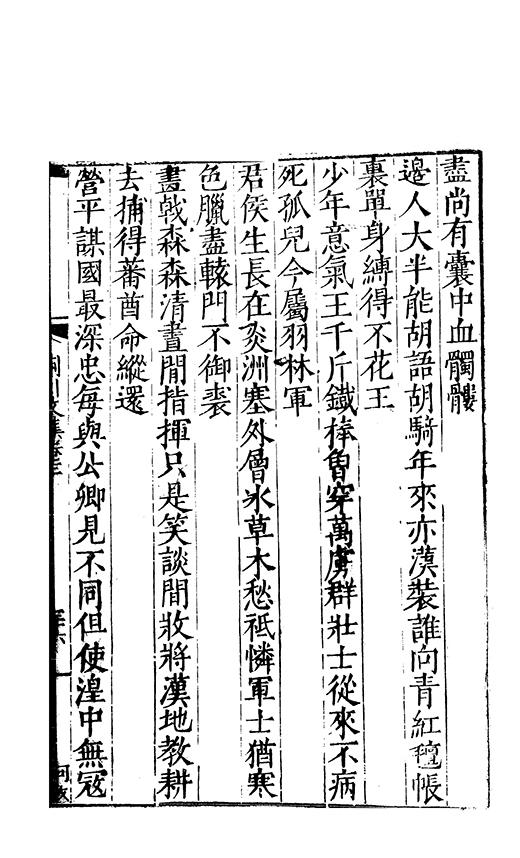 盡尚有囊中血髑髏
邊人大半能胡語胡騎年來亦漢裝誰向青紅氊帳
裏單身縛得不花王
少年意氣王千斤鐵棒曾穿萬虜群壯士從來不病
死孤兒今屬羽林軍
君侯生長在炎洲塞外層氷草木愁祗憐軍士猶寒
色臘盡轅門不御裘
畫戟森森清晝閒指揮只是笑談間妝將漢地教耕
去捕得蕃酋命縱還
營平謀國最深忠每與公卿見不同但使湟中無冦